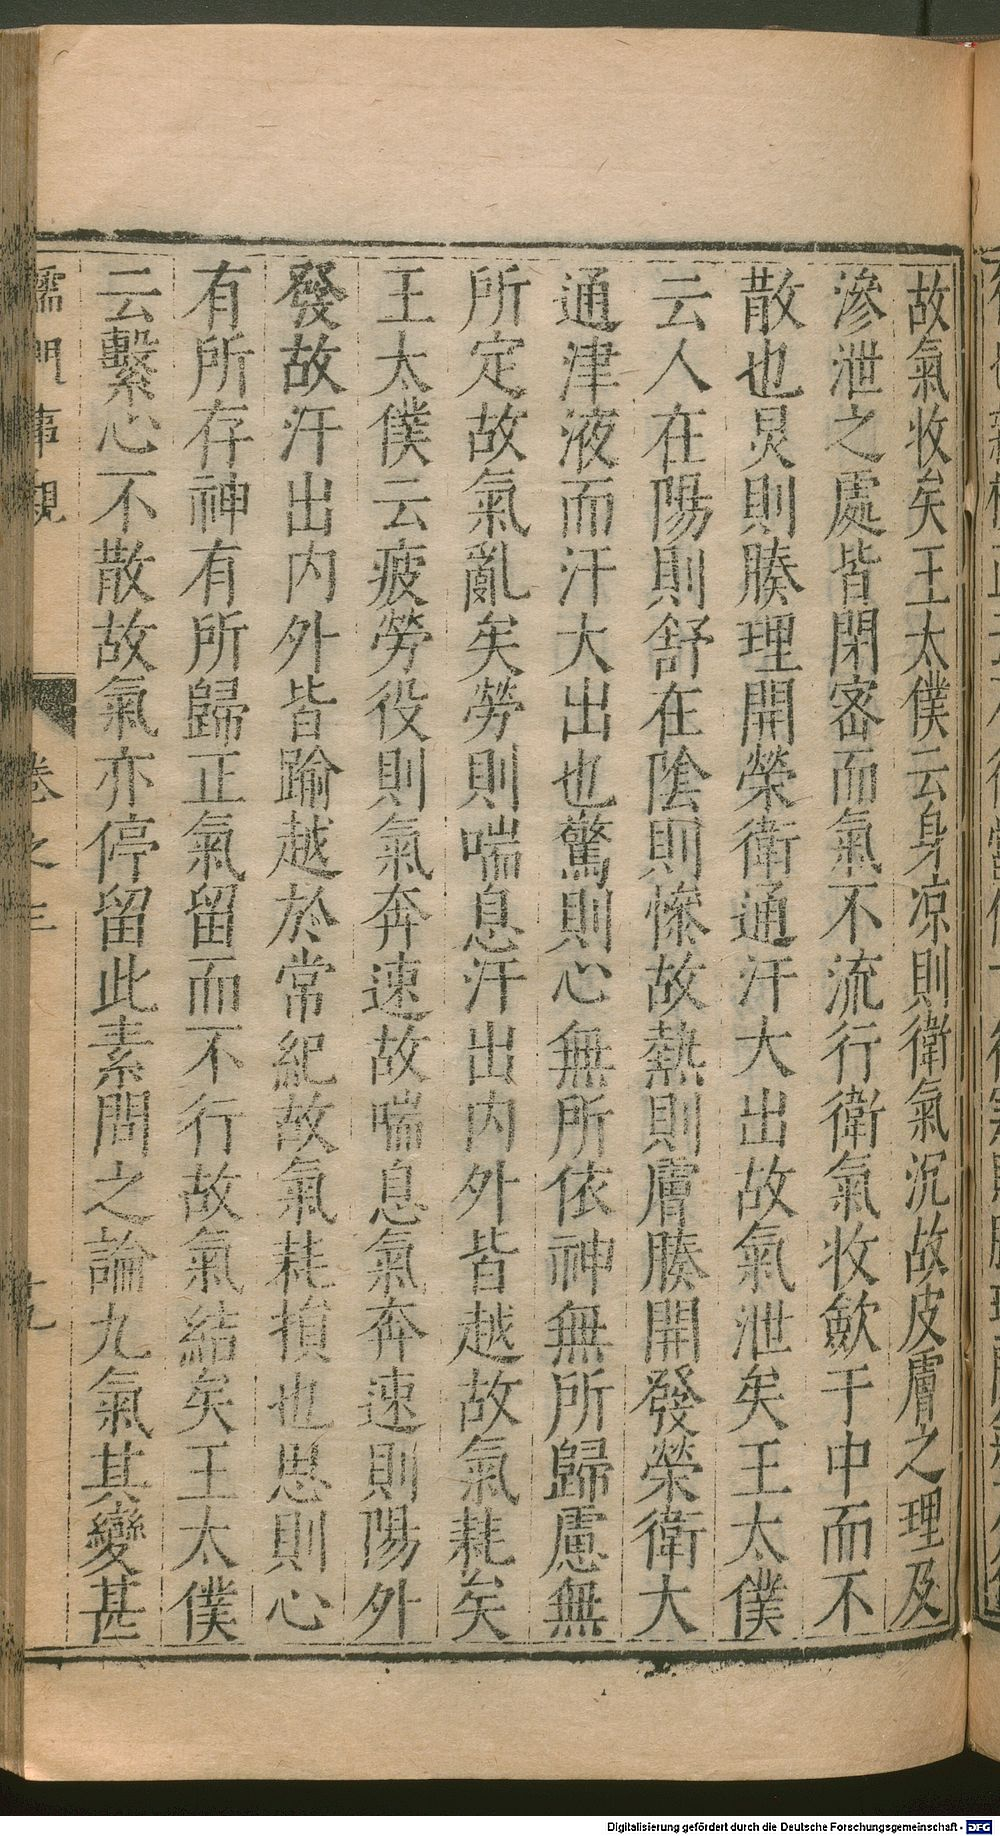 故氣收矣王太僕云身凉則衛氣沉故皮膚之理及
滲泄之處皆閉密而氣不流行衛氣收歛于中而不
散也炅則腠理開榮衛通汗大出故氣泄矣王太僕
云人在陽則舒在陰則慘故熱則膚腠開發榮衛大
通津液而汗大出也驚則心無所依神無所歸慮無
所定故氣亂矣勞則喘息汗出内外皆越故氣耗矣
王太僕云疲勞役則氣奔速故喘息氣奔速則陽外
發故汗出内外皆踰越於常紀故氣耗損也思則心
有所存神有所歸正氣留而不行故氣結矣王太僕
云繫心不散故氣亦停留此素問之論九氣其變甚
儒門事親
卷之三
Digitalisierung gefördert durch die Deutsche Forschungsgemeinschaft - DFG